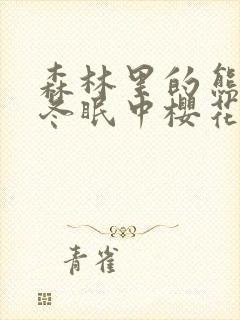 森林里的熊
冬眠中樱花
青雀